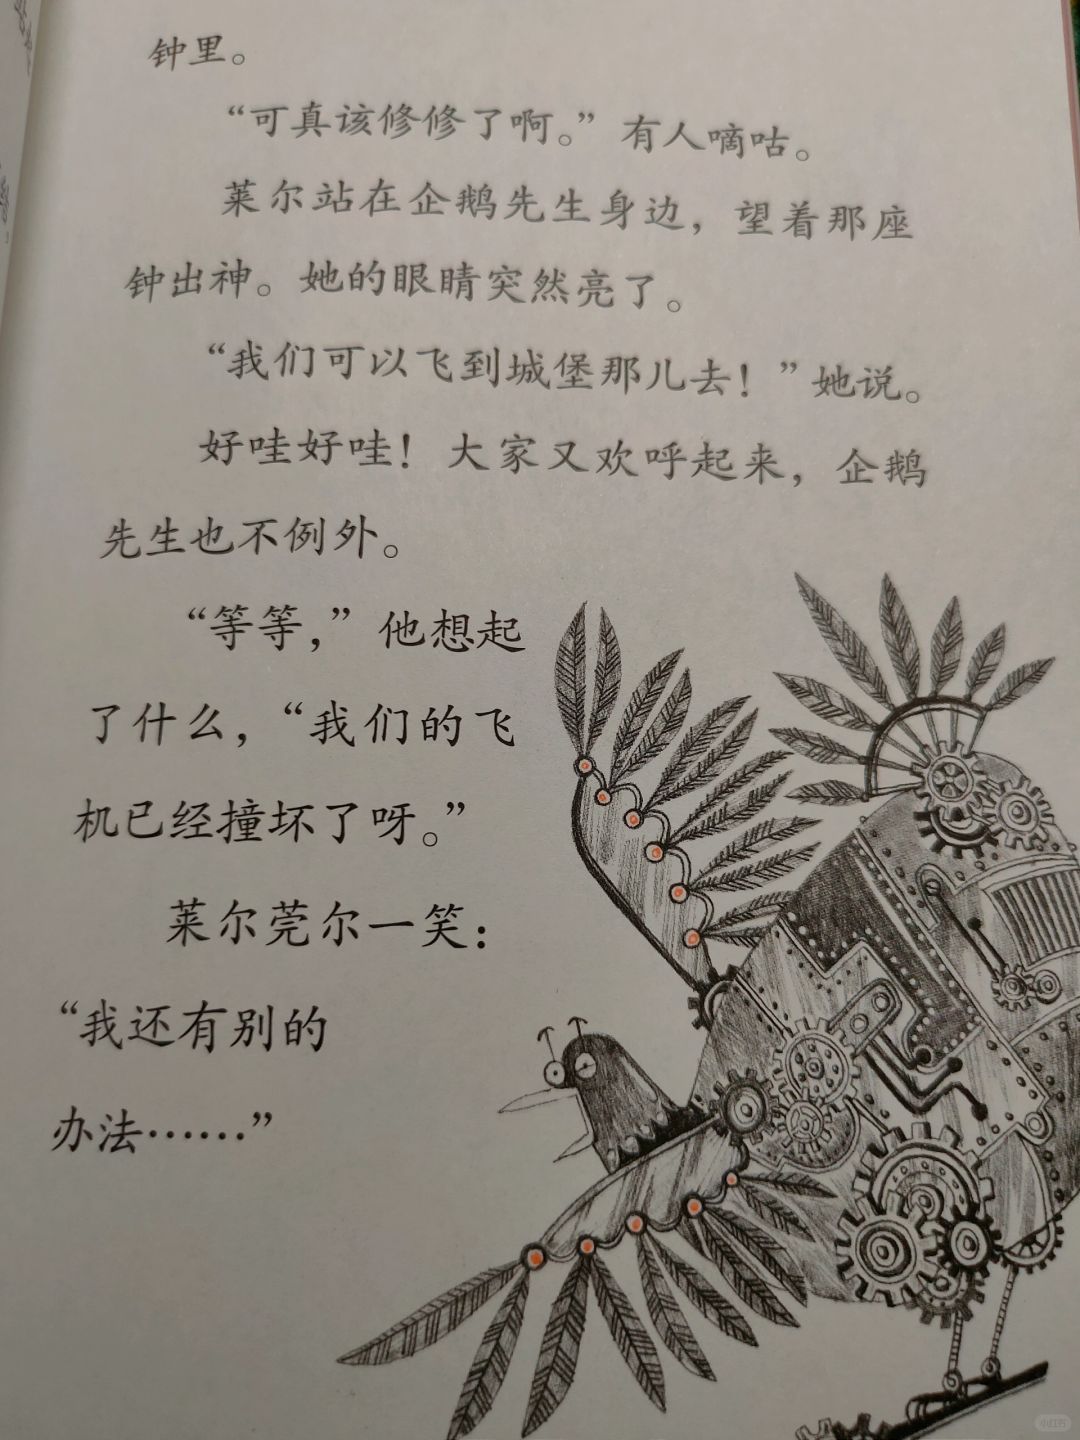 钟里。
“可真该修修了啊。”有人嘀咕。
莱尔站在企鹅先生身边，望着那座
钟出神。她的眼睛突然亮了。
“我们可以飞到城堡那儿去！”她说。
好哇好哇！大家又欢呼起来，企鹅
先生也不例外。
“等等，”他想起
了什么，“我们的飞
机已经撞坏了呀。”
莱尔莞尔一笑：
“我还有别的
办法……”
小红书